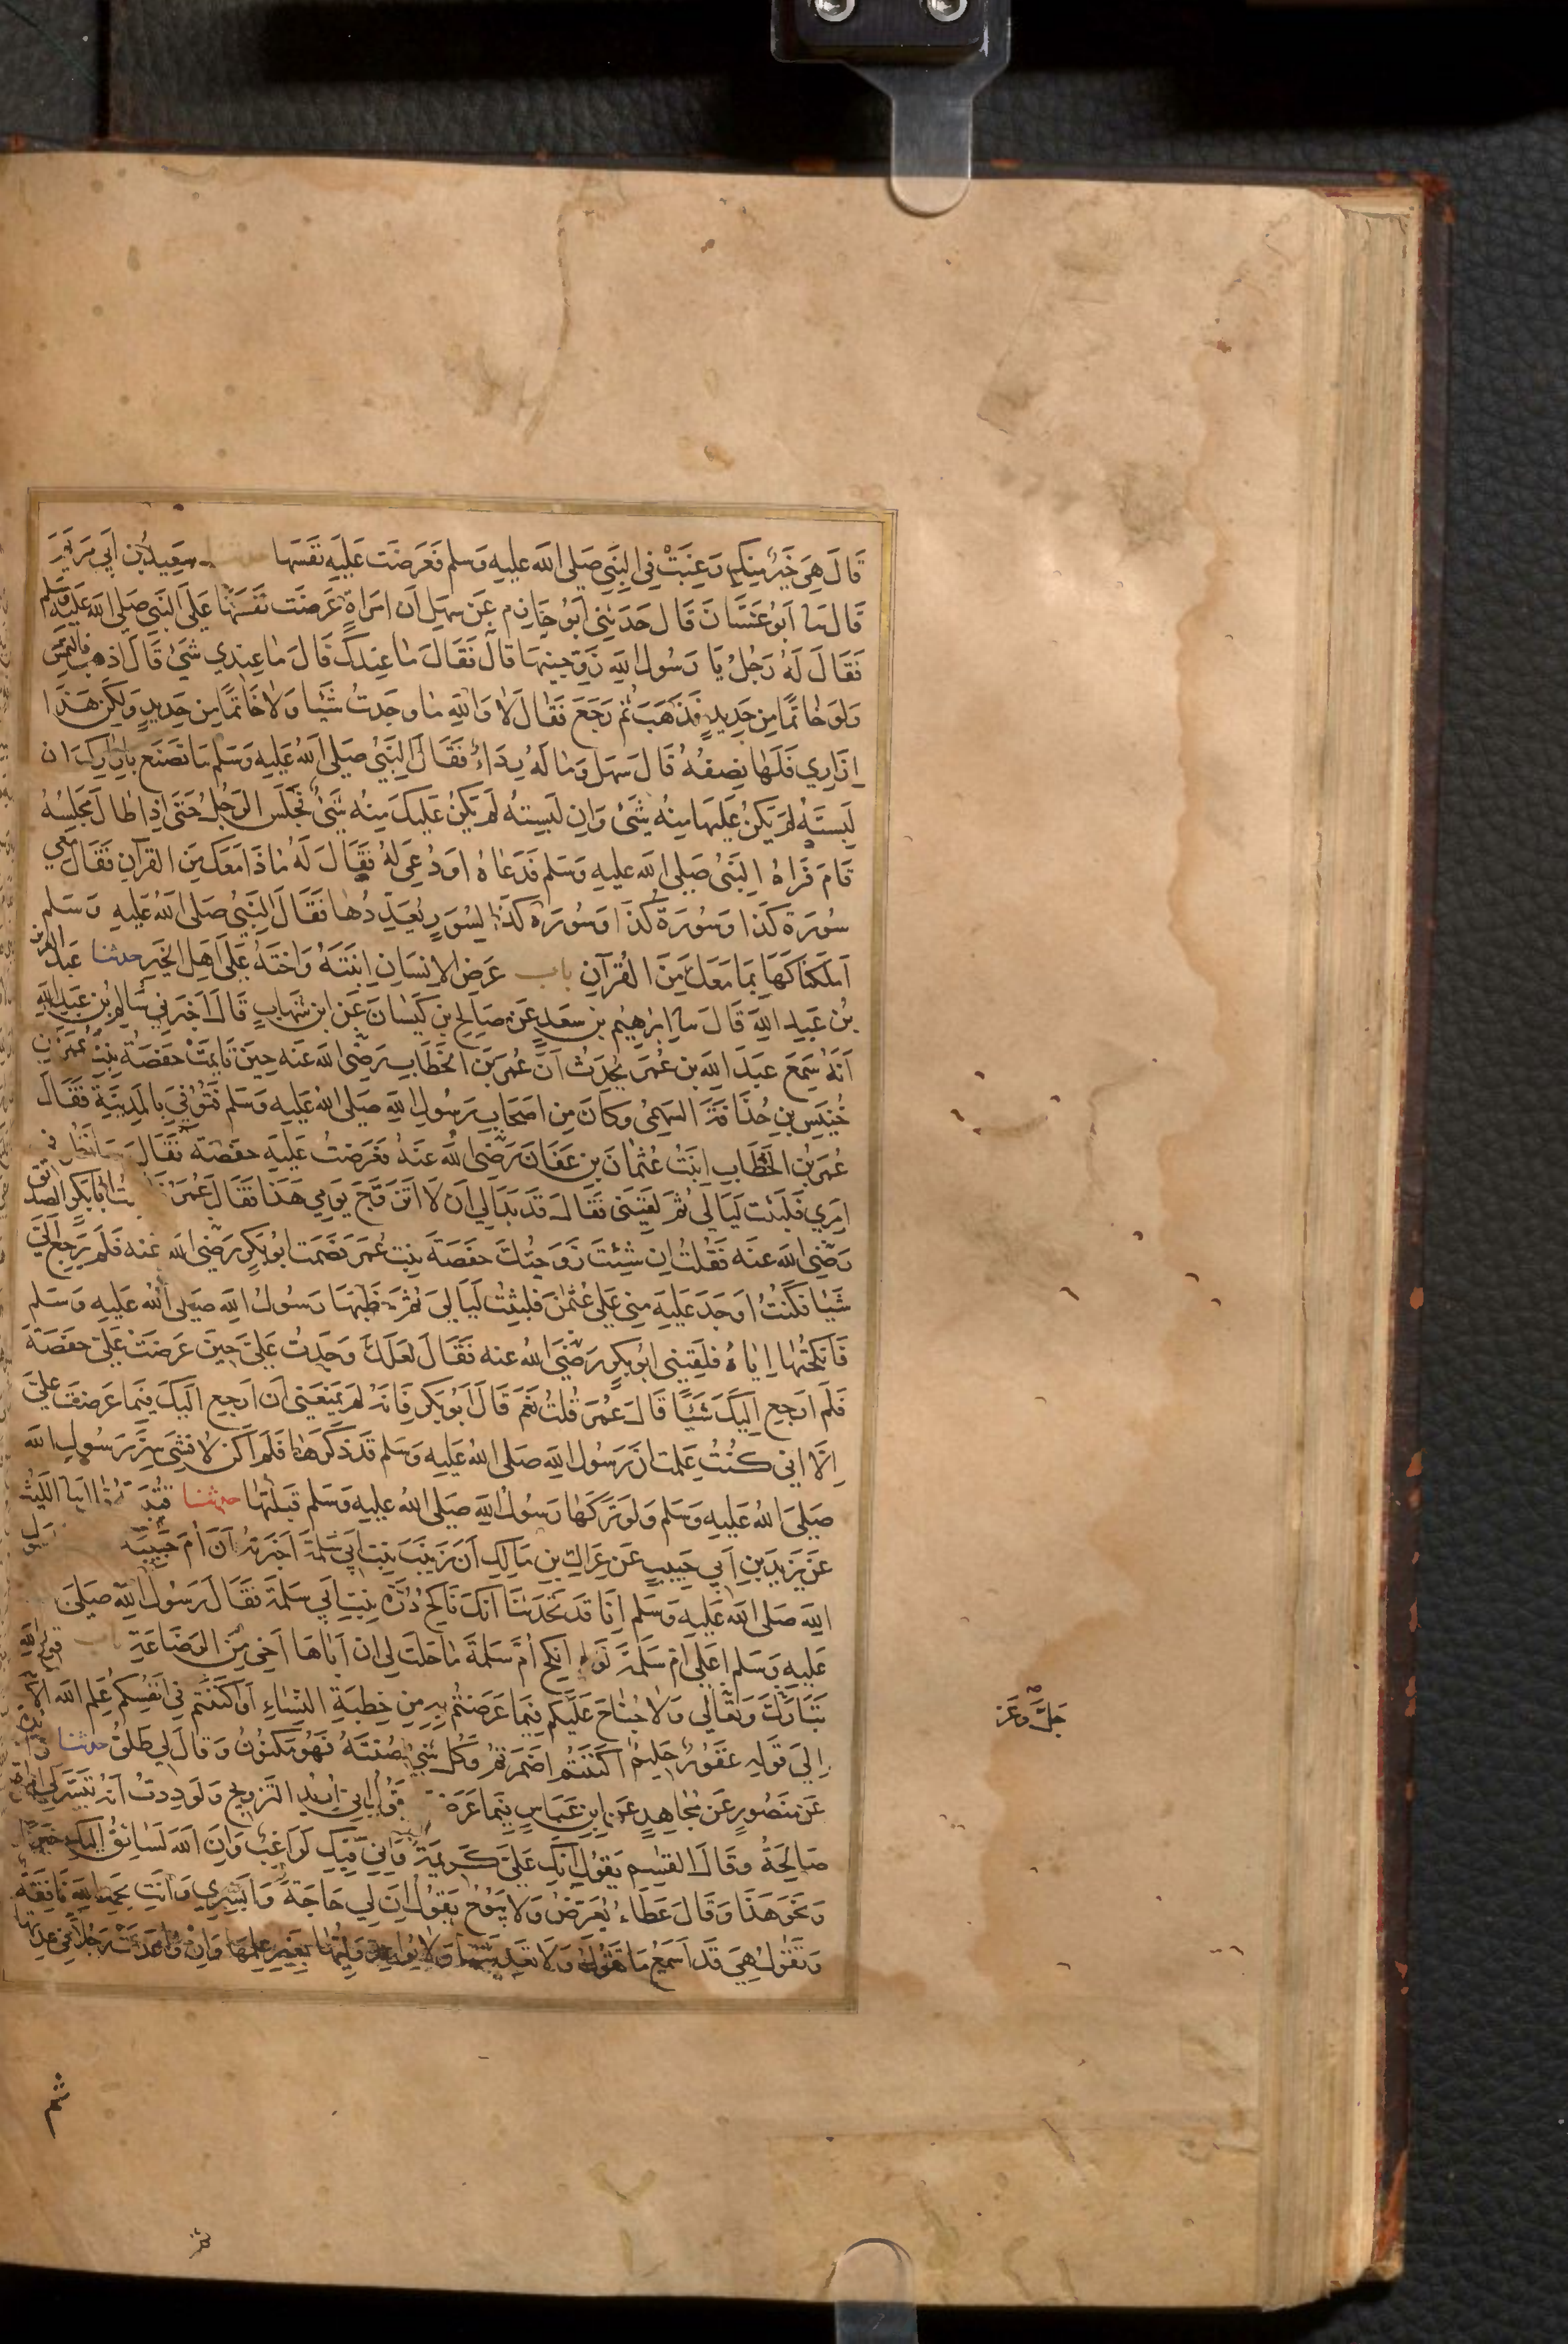 قَالَ هِيَ خَيْرٌ مِنْكِ رَغِبَتْ فِي النَّبِيِّ صَلَّى اللّٰهُ عَلَيْهِ وَسَلَّمَ فَعَرَضَتْ عَلَيْهِ نَفْسَهَا سَعِيدُ بْنُ أَبِي مَرْيَمَ
قَالَ ثنا أَبُو غَسَّانَ قَالَ حَدَّثَنِي أَبُو حَازِمٍ عَنْ سَهْلٍ أَنَّ امْرَأَةً عَرَضَتْ نَفْسَهَا عَلَى النَّبِيِّ صَلَّى اللّٰهُ عَلَيْهِ وَسَلَّمَ
فَقَالَ لَهُ رَجُلٌ يَا رَسُولَ اللّٰهِ زَوِّجْنِيهَا قَالَ فَقَالَ مَا عِنْدَكَ قَالَ مَا عِنْدِي شَيْءٌ قَالَ اذْهَبْ فَالْتَمِسْ
وَلَوْ خَاتَمًا مِنْ حَدِيدٍ فَذَهَبَ ثُمَّ رَجَعَ فَقَالَ لَا وَاللّٰهِ مَا وَجَدْتُ شَيْئًا وَلَا خَاتَمًا مِنْ حَدِيدٍ وَلٰكِنْ هٰذَا
إِزَارِي فَلَهَا نِصْفُهُ قَالَ سَهْلٌ وَمَا لَهُ رِدَاءٌ فَقَالَ النَّبِيُّ صَلَّى اللّٰهُ عَلَيْهِ وَسَلَّمَ مَا تَصْنَعُ بِإِزَارِكَ إِنْ
لَبِسْتَهُ لَمْ يَكُنْ عَلَيْهَا مِنْهُ شَيْءٌ وَإِنْ لَبِسَتْهُ لَمْ يَكُنْ عَلَيْكَ مِنْهُ شَيْءٌ فَجَلَسَ الرَّجُلُ حَتَّى إِذَا طَالَ مَجْلِسُهُ
قَامَ فَرَآهُ النَّبِيُّ صَلَّى اللّٰهُ عَلَيْهِ وَسَلَّمَ فَدَعَاهُ أَوْ دُعِيَ لَهُ فَقَالَ لَهُ مَاذَا مَعَكَ مِنَ الْقُرْآنِ فَقَالَ مَعِي
سُورَةُ كَذَا وَسُورَةُ كَذَا وَسُورَةُ كَذَا لِسُوَرٍ يُعَدِّدُهَا فَقَالَ النَّبِيُّ صَلَّى اللّٰهُ عَلَيْهِ وَسَلَّمَ
أَمْلَكْنَاكَهَا بِمَا مَعَكَ مِنَ الْقُرْآنِ باب عَرْضِ الْإِنْسَانِ ابْنَتَهُ وَأُخْتَهُ عَلَى أَهْلِ الْخَيْرِ حدثنا عَبْدُ الْعَزِيزِ
بْنُ عَبْدِ اللّٰهِ قَالَ ثنا إِبْرَاهِيمُ بْنُ سَعْدٍ عَنْ صَالِحِ بْنِ كَيْسَانَ عَنِ ابْنِ شِهَابٍ قَالَ أَخْبَرَنِي سَالِمُ بْنُ عَبْدِ اللّٰهِ
أَنَّهُ سَمِعَ عَبْدَ اللّٰهِ بْنَ عُمَرَ يُحَدِّثُ أَنَّ عُمَرَ بْنَ الْخَطَّابِ رَضِيَ اللّٰهُ عَنْهُ حِينَ تَأَيَّمَتْ حَفْصَةُ بِنْتُ عُمَرَ مِنْ
خُنَيْسِ بْنِ حُذَافَةَ السَّهْمِيِّ وَكَانَ مِنْ أَصْحَابِ رَسُولِ اللّٰهِ صَلَّى اللّٰهُ عَلَيْهِ وَسَلَّمَ فَتُوُفِّيَ بِالْمَدِينَةِ فَقَالَ
عُمَرُ بْنُ الْخَطَّابِ أَتَيْتُ عُثْمَانَ بْنَ عَفَّانَ رَضِيَ اللّٰهُ عَنْهُ فَعَرَضْتُ عَلَيْهِ حَفْصَةَ فَقَالَ سَأَنْظُرُ فِي
أَمْرِي فَلَبِثْتُ لَيَالِيَ ثُمَّ لَقِيَنِي فَقَالَ قَدْ بَدَا لِي أَنْ لَا أَتَزَوَّجَ يَوْمِي هٰذَا فَقَالَ عُمَرُ أَبَا بَكْرٍ الصِّدِّيقَ
رَضِيَ اللّٰهُ عَنْهُ فَقُلْتُ إِنْ شِئْتَ زَوَّجْتُكَ حَفْصَةَ بِنْتَ عُمَرَ فَصَمَتَ أَبُو بَكْرٍ رَضِيَ اللّٰهُ عَنْهُ فَلَمْ يَرْجِعْ إِلَيَّ
شَيْئًا فَكُنْتُ أَوْجَدَ عَلَيْهِ مِنِّي عَلَى عُثْمَانَ فَلَبِثْتُ لَيَالِيَ ثُمَّ خَطَبَهَا رَسُولُ اللّٰهِ صَلَّى اللّٰهُ عَلَيْهِ وَسَلَّمَ
فَأَنْكَحْتُهَا إِيَّاهُ فَلَقِيَنِي أَبُو بَكْرٍ رَضِيَ اللّٰهُ عَنْهُ فَقَالَ لَعَلَّكَ وَجَدْتَ عَلَيَّ حِينَ عَرَضْتَ عَلَيَّ حَفْصَةَ
فَلَمْ أَرْجِعْ إِلَيْكَ شَيْئًا قَالَ عُمَرُ قُلْتُ نَعَمْ قَالَ أَبُو بَكْرٍ فَإِنَّهُ لَمْ يَمْنَعْنِي أَنْ أَرْجِعَ إِلَيْكَ فِيمَا عَرَضْتَ عَلَيَّ
إِلَّا أَنِّي كُنْتُ عَلِمْتُ أَنَّ رَسُولَ اللّٰهِ صَلَّى اللّٰهُ عَلَيْهِ وَسَلَّمَ قَدْ ذَكَرَهَا فَلَمْ أَكُنْ لِأُفْشِيَ سِرَّ رَسُولِ اللّٰهِ
صَلَّى اللّٰهُ عَلَيْهِ وَسَلَّمَ وَلَوْ تَرَكَهَا رَسُولُ اللّٰهِ صَلَّى اللّٰهُ عَلَيْهِ وَسَلَّمَ قَبِلْتُهَا حدثنا اللَّيْثُ
عَنْ يَزِيدَ بْنِ أَبِي حَبِيبٍ عَنْ عِرَاكِ بْنِ مَالِكٍ أَنَّ زَيْنَبَ بِنْتَ أَبِي سَلَمَةَ أَخْبَرَتْهُ أَنَّ أُمَّ حَبِيبَةَ
اللّٰهِ صَلَّى اللّٰهُ عَلَيْهِ وَسَلَّمَ إِنَّا قَدْ تَحَدَّثْنَا أَنَّكَ نَاكِحٌ دُرَّةَ بِنْتَ أَبِي سَلَمَةَ فَقَالَ رَسُولُ اللّٰهِ صَلَّى
عَلَيْهِ وَسَلَّمَ أَعَلَى أُمِّ سَلَمَةَ لَوْ لَمْ أَنْكِحْ أُمَّ سَلَمَةَ مَا حَلَّتْ لِي إِنَّ أَبَاهَا أَخِي مِنَ الرَّضَاعَةِ باب قَوْلِ اللّٰهِ
تَبَارَكَ وَتَعَالَى وَلَا جُنَاحَ عَلَيْكُمْ فِيمَا عَرَّضْتُمْ بِهِ مِنْ خِطْبَةِ النِّسَاءِ أَوْ أَكْنَنْتُمْ فِي أَنْفُسِكُمْ عَلِمَ اللّٰهُ الْآيَةَ
إِلَى قَوْلِهِ غَفُورٌ حَلِيمٌ أَكْنَنْتُمْ أَضْمَرْتُمْ وَكُلُّ شَيْءٍ صُنْتَهُ فَهُوَ مَكْنُونٌ وَقَالَ لِي طَلْقٌ حدثنا
عَنْ مَنْصُورٍ عَنْ مُجَاهِدٍ عَنِ ابْنِ عَبَّاسٍ فِيمَا عَرَّضْتُمْ يَقُولُ إِنِّي أُرِيدُ التَّزْوِيجَ وَلَوَدِدْتُ أَنَّهُ تَيَسَّرَ لِي امْرَأَةٌ
صَالِحَةٌ وَقَالَ الْقَاسِمُ يَقُولُ إِنَّكِ عَلَيَّ كَرِيمَةٌ وَإِنِّي فِيكِ لَرَاغِبٌ وَإِنَّ اللّٰهَ لَسَائِقٌ إِلَيْكِ خَيْرًا
وَنَحْوَ هٰذَا وَقَالَ عَطَاءٌ يُعَرِّضُ وَلَا يَبُوحُ يَقُولُ إِنَّ لِي حَاجَةً وَأَبْشِرِي وَأَنْتِ بِحَمْدِ اللّٰهِ نَافِقَةٌ
وَتَقُولُ هِيَ قَدْ أَسْمَعُ مَا تَقُولُ وَلَا تَعِدُ شَيْئًا وَلَا يُوَاعِدُ وَلِيُّهَا بِغَيْرِ عِلْمِهَا وَإِنْ وَاعَدَتْ رَجُلًا فِي عِدَّتِهَا
جَلَّ وَعَزَّ
ثم